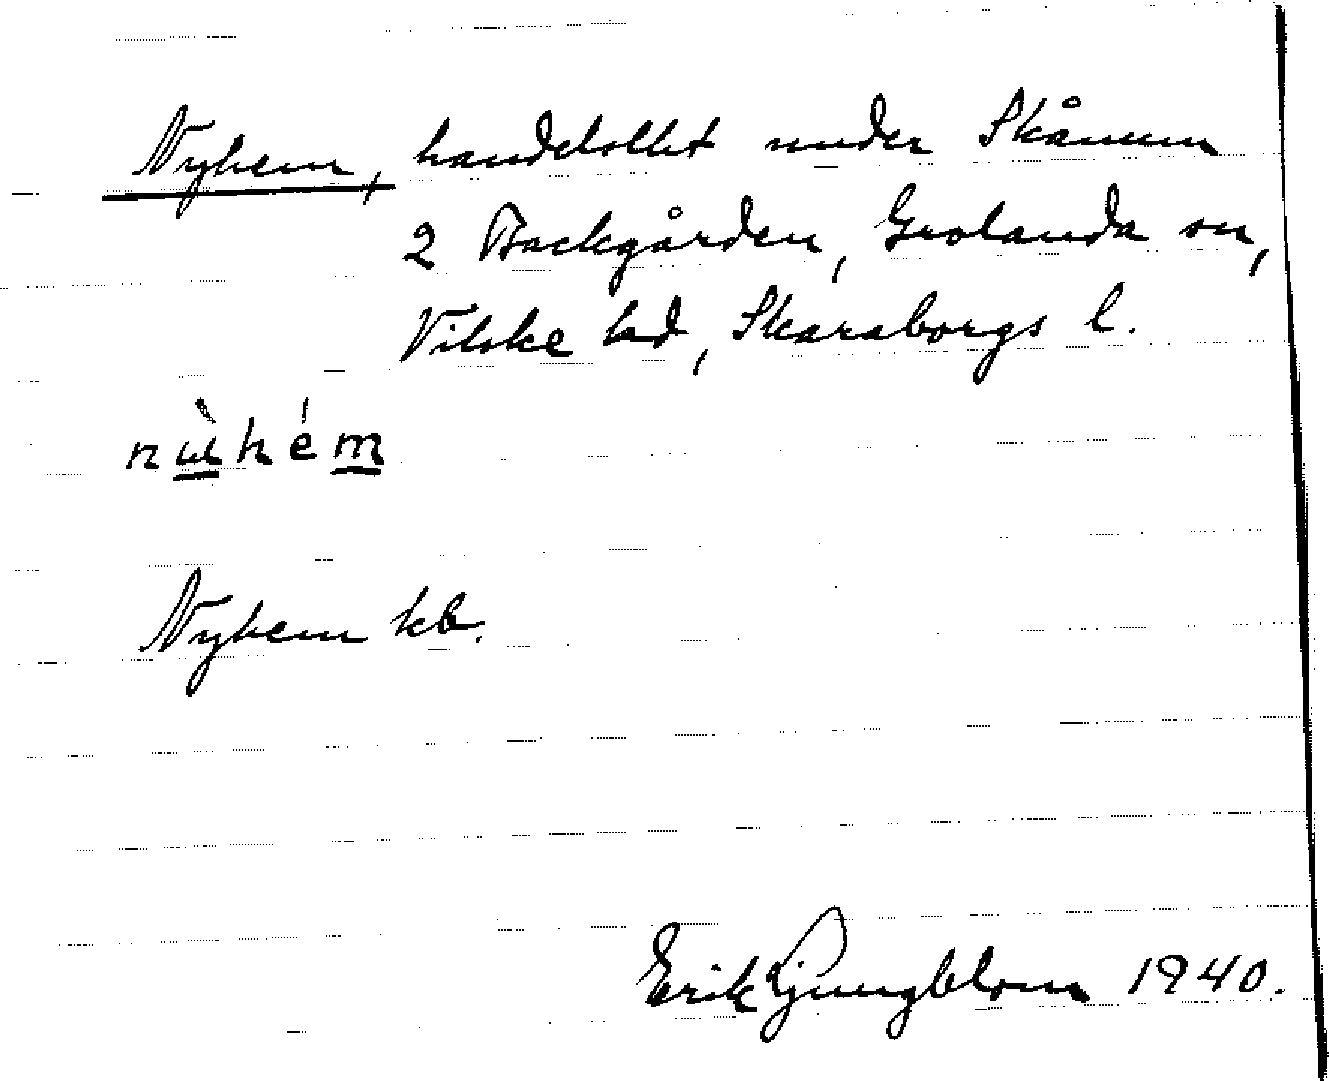 Nyhem, handelslht under Skånum
2 Backgården, Grolanda sn,
Vilske hd, Skaraborgs l.
nù̱hém̱
Nyhem kb.
Erik Ljungblom 1940.